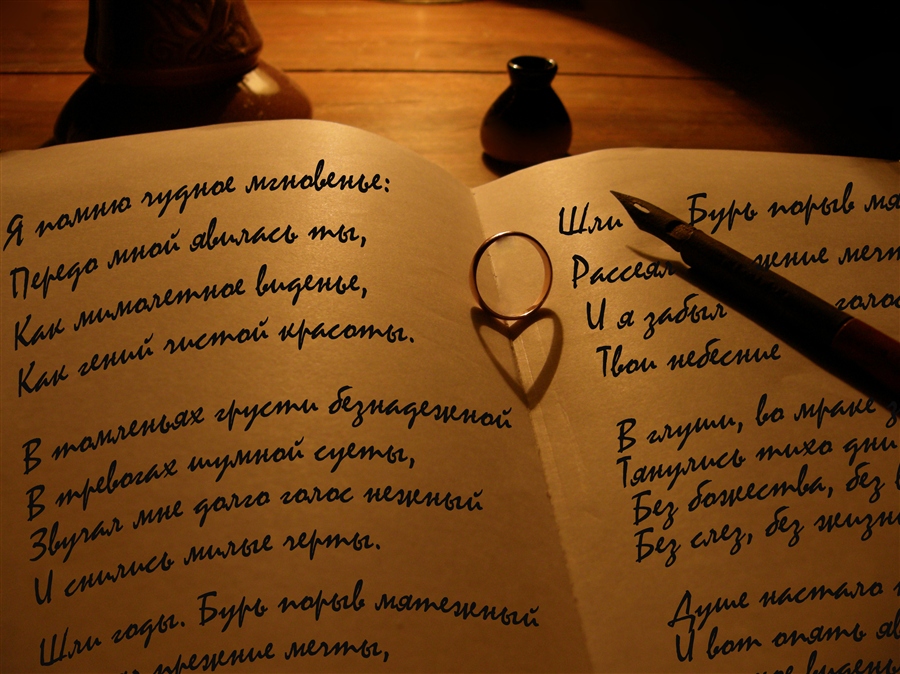 Я помню чудное мгновенье:
Передо мной явилась ты,
Как мимолетное виденье,
Как гений чистой красоты.
В томленьях грусти безнадежной
В тревогах шумной суеты,
Звучал мне долго голос нежный
И снились милые черты.
Шли годы. Бурь порыв мятежный
прежние мечты,
Шли Бурь порыв мя
Рассеял мечт
И я забыл голос
Твои небесные
В глуши, во мраке
Тянулись тихо дни
Без божества, без
Без слез, без жизн
Душе настало
И вот опять яв
виденье